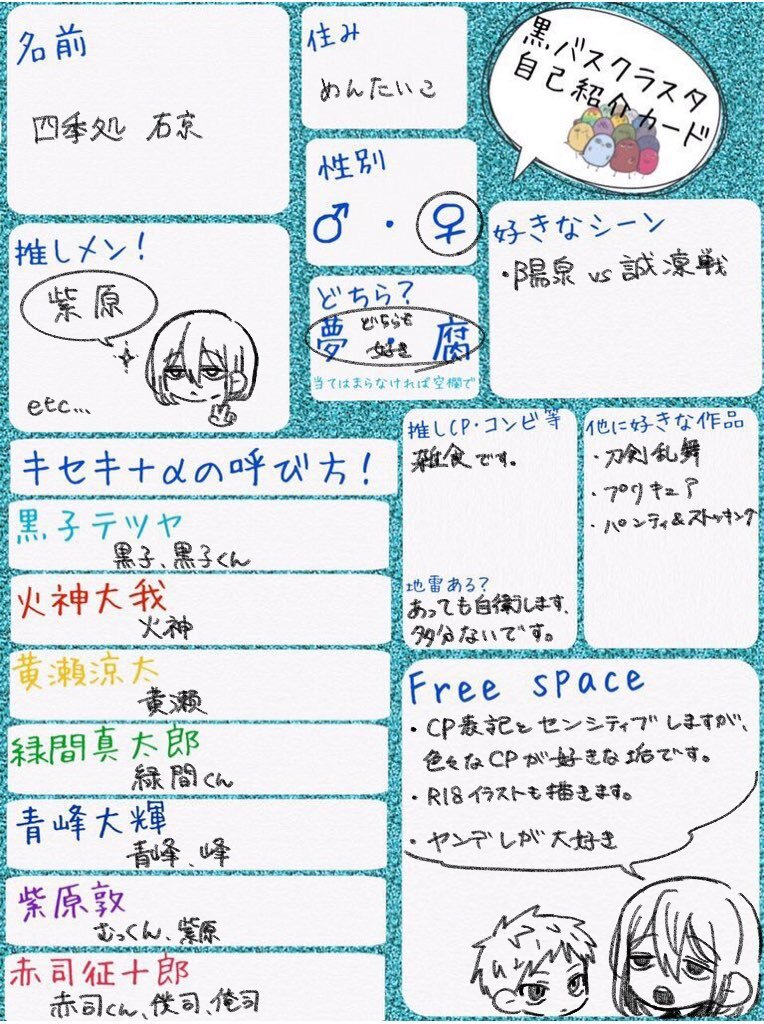 黒バスクラスタ
自己紹介カード
名前
四季処 右京
住み
めんたいこ
性別
♂・♀
推しメン!
紫原
etc...
どちら?
夢・腐
どちらも
好き
当てはまらなければ空欄で
好きなシーン
・陽泉 vs 誠凛戦
キセキ+αの呼び方!
黒子テツヤ
黒子、黒子くん
火神大我
火神
黄瀬涼太
黄瀬
緑間真太郎
緑間くん
青峰大輝
青峰、峰
紫原敦
むっくん、紫原
赤司征十郎
赤司くん、僕司、俺司
推しCP・コンビ等
雑食です。
地雷ある?
あっても自衛します、
多分ないです。
他に好きな作品
・刀剣乱舞
・プリキュア
・パンティ&ストッキング
Free space
・CP表記とセンシティブしますが、
色々なCPが好きな垢です。
・R18イラストも描きます。
・ヤンデレが大好き